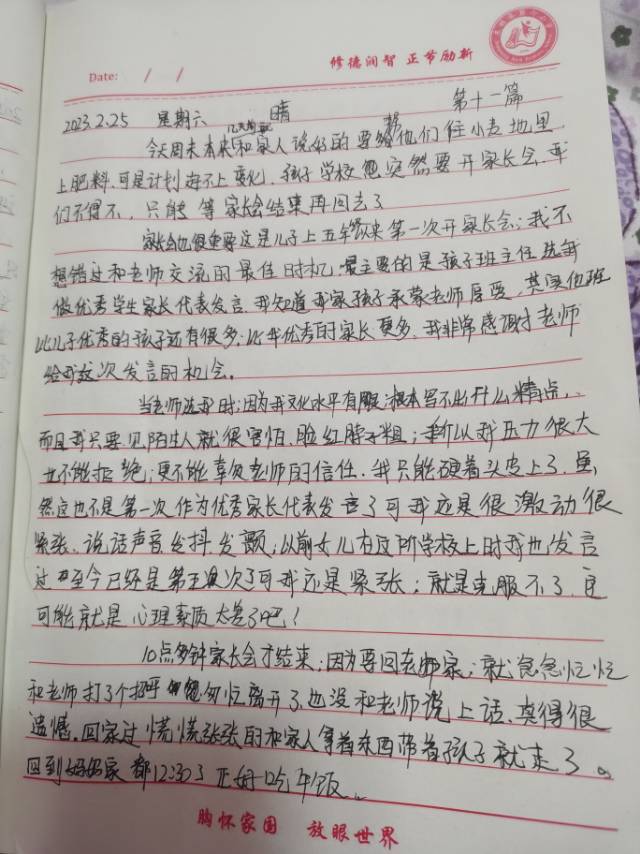 修德润智 正节励新
Date: / /
2023.2.25 星期六 晴 第十一篇
几天前就
今天周末本来和家人说好的要帮他们往小麦地里
上肥料.可是计划赶不上变化.孩子学校也突然要开家长会.我
们不得不.只能等家长会结束再回去了
家长会也很重要这是儿子上五年级以来第一次开家长会;我不
想错过和老师交流的最佳时机.最主要的是孩子班主任选我
做优秀学生家长代表发言.我知道我家孩子承蒙老师厚爱,其实他班
比儿子优秀的孩子还有很多;比我优秀的家长更多.我非常感谢老师
给我这次发言的机会。
当老师选我时;因为我文化水平有限;根本写不出什么精点,
而且我只要见陌生人就很害怕.脸红脖子粗;所以我压力很大
也不能拒绝;更不能辜负老师的信任.我只能硬着头皮上了.虽
然这也不是第一次作为优秀家长代表发言了可我还是很激动很
紧张.说话声音发抖.发颤;以前女儿在这所学校上时我也发言
过 至今已经是第五 次了可我还是紧张;就是克服不了.这
可能就是心理素质太差了吧!
10点多钟家长会才结束;因为要回 家;就急急忙忙
和老师打了个招呼 匆忙离开了.也没和老师说上话.真得很
遗憾.回家过慌慌张张的和家人拿着东西带着孩子就走了。
回到妈妈家都12:30了正好吃午饭。
胸怀家国 放眼世界